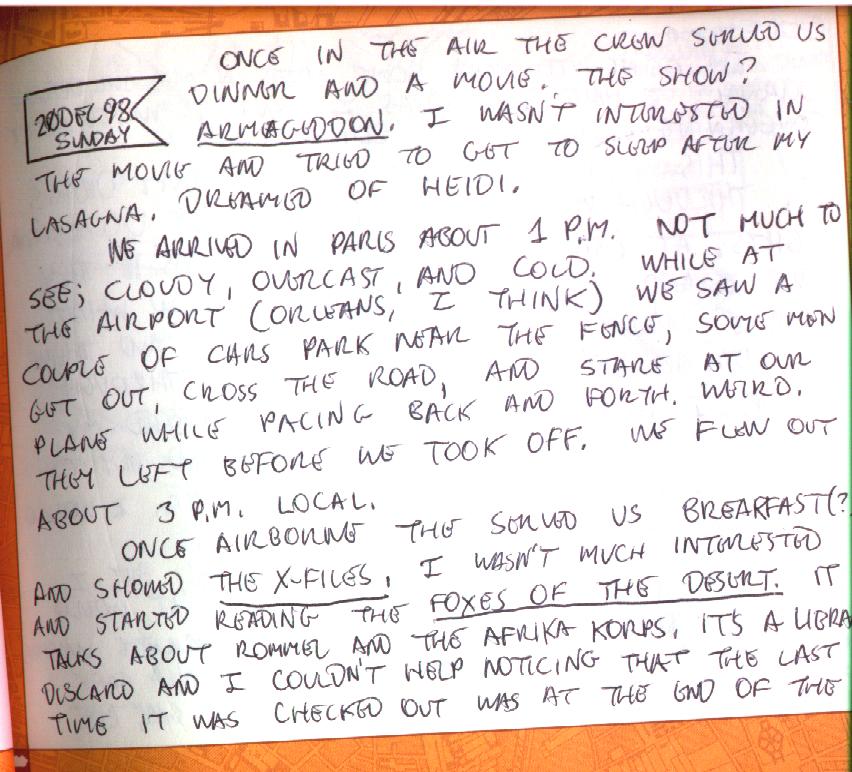 ONCE IN THE AIR THE CREW SERVED US
DINNER AND A MOVIE. THE SHOW?
20DEC98
SUNDAY
ARMAGEDDON. I WASN'T INTERESTED IN
THE MOVIE AND TRIED TO GET TO SLEEP AFTER MY
LASAGNA. DREAMED OF HEIDI.
WE ARRIVED IN PARIS ABOUT 1 P.M. NOT MUCH TO
SEE; CLOUDY, OVERCAST, AND COLD. WHILE AT
THE AIRPORT (ORLEANS, I THINK) WE SAW A
COUPLE OF CARS PARK NEAR THE FENCE, SOME MEN
GET OUT, CROSS THE ROAD, AND STARE AT OUR
PLANE WHILE PACING BACK AND FORTH. WEIRD.
THEY LEFT BEFORE WE TOOK OFF. WE FLEW OUT
ABOUT 3 P.M. LOCAL.
ONCE AIRBORNE THE SERVED US BREAKFAST(?)
AND SHOWED THE X-FILES. I WASN'T MUCH INTERESTED
AND STARTED READING THE FOXES OF THE DESERT. IT
TALKS ABOUT ROMMEL AND THE AFRIKA KORPS. ITS A LIBRA
DISCARD AND I COULDN'T HELP NOTICING THAT THE LAST
TIME IT WAS CHECKED OUT WAS AT THE END OF THE